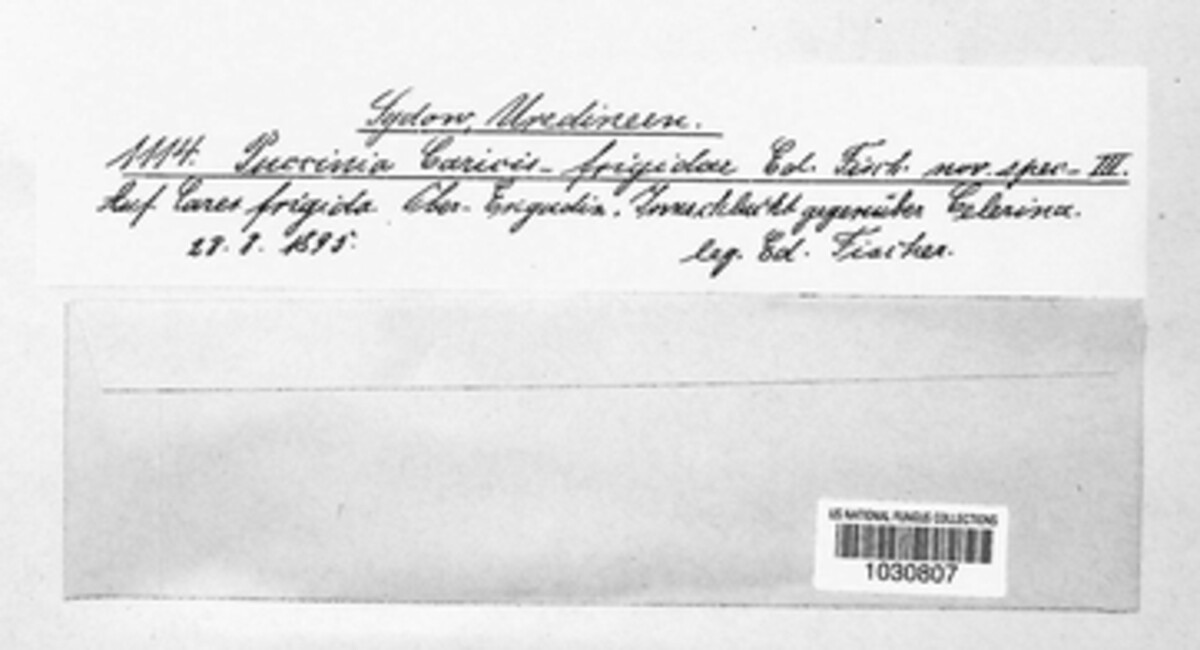 Sydow, Uredineen.
1114. Puccinia Caricis-frigidae Ed. Fisch. nov. spec. III.
Auf Carex frigida Ober-Engadin. Innschlucht gegenüber Celerina.
28. 8. 1895.
leg. Ed. Fischer.
US NATIONAL FUNGUS COLLECTIONS
1030807